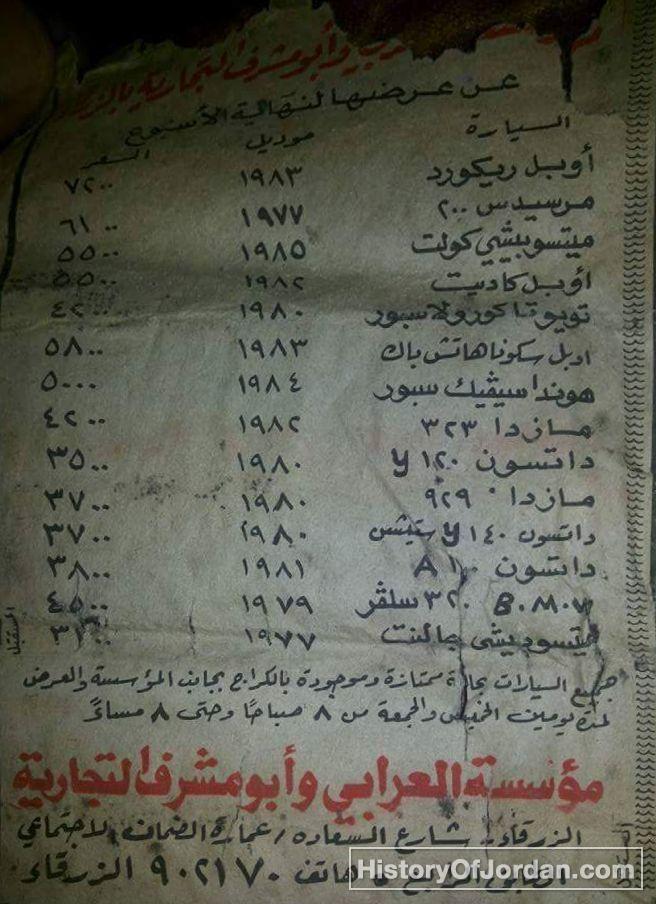 وأبو مشرف التجارية بالزرقاء
عن عرضها لنهاية الأسبوع
السيارة موديل السعر
أوبل ريكورد ١٩٨٣ ٧٢٠٠
مرسيدس ٢٠٠ ١٩٧٧ ٦١٠٠
ميتسوبيشي كولت ١٩٨٥ ٥٥٠٠
أوبل كاديت ١٩٨٢ ٥٥٠٠
تويوتا كورولا سبور ١٩٨٠ ٤٢٠٠
اوبل سكونا هاتش باك ١٩٨٣ ٥٨٠٠
هوندا سيڤيك سبور ١٩٨٤ ٥٠٠٠
مازدا ٣٢٣ ١٩٨٢ ٤٢٠٠
داتسون ١٢٠ y ١٩٨٠ ٣٥٠٠
مازدا ٩٢٩ ١٩٨٠ ٣٧٠٠
داتسون ١٤٠ y ستيشن ١٩٨٠ ٣٧٠٠
داتسون ١٠٠ A ١٩٨١ ٣٨٠٠
B.M.W ٣٢٠ سلڤر ١٩٧٩ ٤٥٠٠
جالنت ١٩٧٧ ٣١٠٠
جميع السيارات بحالة ممتازة وموجودة بالكراج بجانب المؤسسة والعرض
لمدة يومين الخميس والجمعة من ٨ صباحاً وحتى ٨ مساءً
مؤسسة العرابي وأبو مشرف التجارية
الزرقاء - شارع السعاده / عمارة الضمان الاجتماعي
الرابع هاتف ٩٠٢١٧٠ الزرقاء
المستقبل
HistoryOfJordan.com